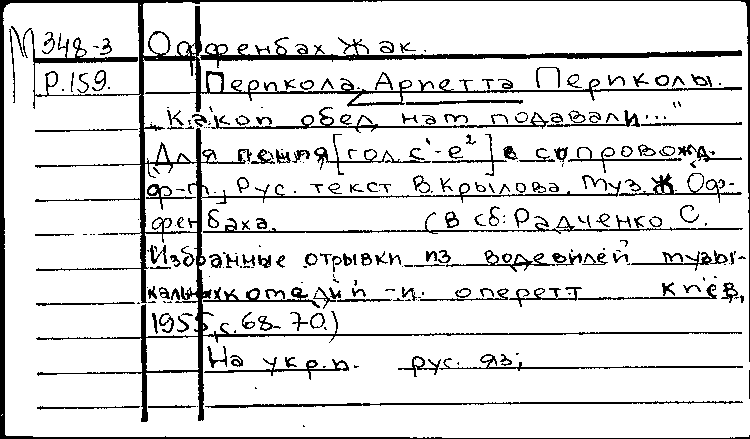 М 348-3 Оффенбах Жак.
Р.159. Перикола. Ариетта Периколы.
„Какой обед нам подавали..."
[Для пения [гол. c¹-e²] в сопровожд.
ф-п., Рус. текст В. Крылова. Муз. Ж. Оф-
фенбаха. (В сб: Радченко С.
Избранные отрывки из водевилей музы-
кальных комедий и оперетт Киев,
1955, с. 68-70.)
На укр. и рус. яз;